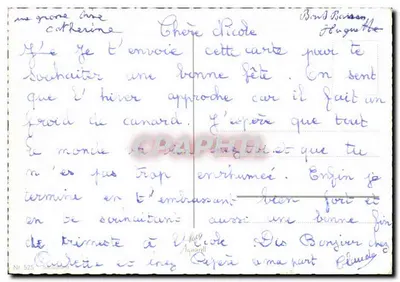 une grosse bise Bons Baisers
Catherine Huguette
Chère Nicole
Je t'envoie cette carte pour te
souhaiter une bonne fête. On sent
que l'hiver approche car il fait un
froid de canard. J'espère que tout
le monde va bien que tu
n'es pas trop enrhumée. Enfin je
termine en t'embrassant bien fort et
en te souhaitant aussi une bonne fin
de trimestre à l'école Dis Bonjour chez
Paulette et chez Pépé à ma part Claude
CPAPHIL